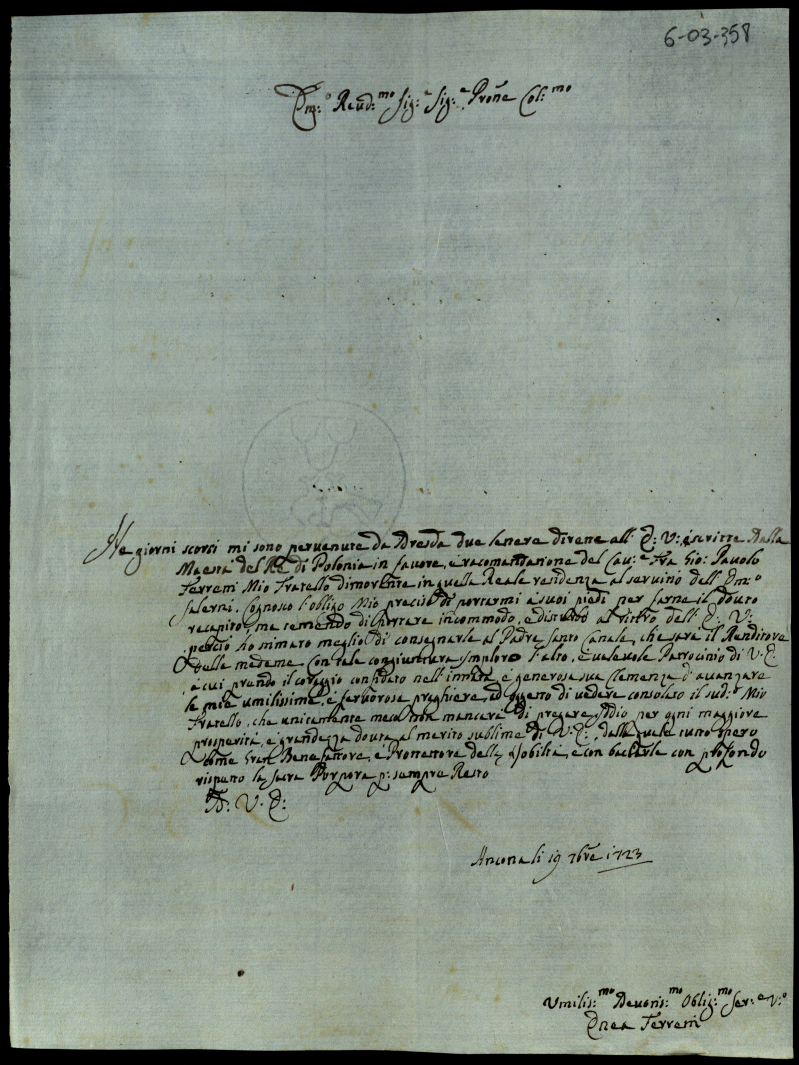 6-03-358
Em:o Reud:mo Sig:e Sig:e Prõne Col:mo
Ne giorni scorsi mi sono pervenute da Dresda due lettere dirette all' E: V: scritte dalla
Maestà del Rè di Polonia in fauore, e racomandatione del Cau:e Fra Gio: Pauolo
Ferretti Mio Fratello dimorante in quella Reale residenza al seruitio dell' Em:o
Salerni. Cognosco l'obligo Mio preciso di portarmi a suoi piedi per farne il douto
recapito, ma temendo di portare incommodo, e disturbo al ritiro dell' E: V:
perciò hò stimato meglio di consegnarle al Padre Santo Canale, che sarà il Renditore
delle medeme. Con tale congiuntura imploro l'alto, e ualeuole Patrocinio di V: E:
à cui prendo il coraggio confidato nell' innata e generosa sua Clemenza d'auanzare
le mie umilissime, e feruorose preghiere, ad oggetto di uedere consolato il sud:o Mio
Fratello, che unitamente meco non mancarà di pregare Iddio per ogni maggiore
prosperità, e grandezza douta al merito sublime di V: E:, dalla quale tutto spero
come Gran Benefattore, e Protettore della Nobiltà, e con baciarle con profondo
rispetto la Sacra Porpora p: sempre Resto
D: V: E:
Ancona li 19 7bre 1723
Umilis:mo Deuotis:mo Oblig:mo Ser:e V:o
Enea Ferretti